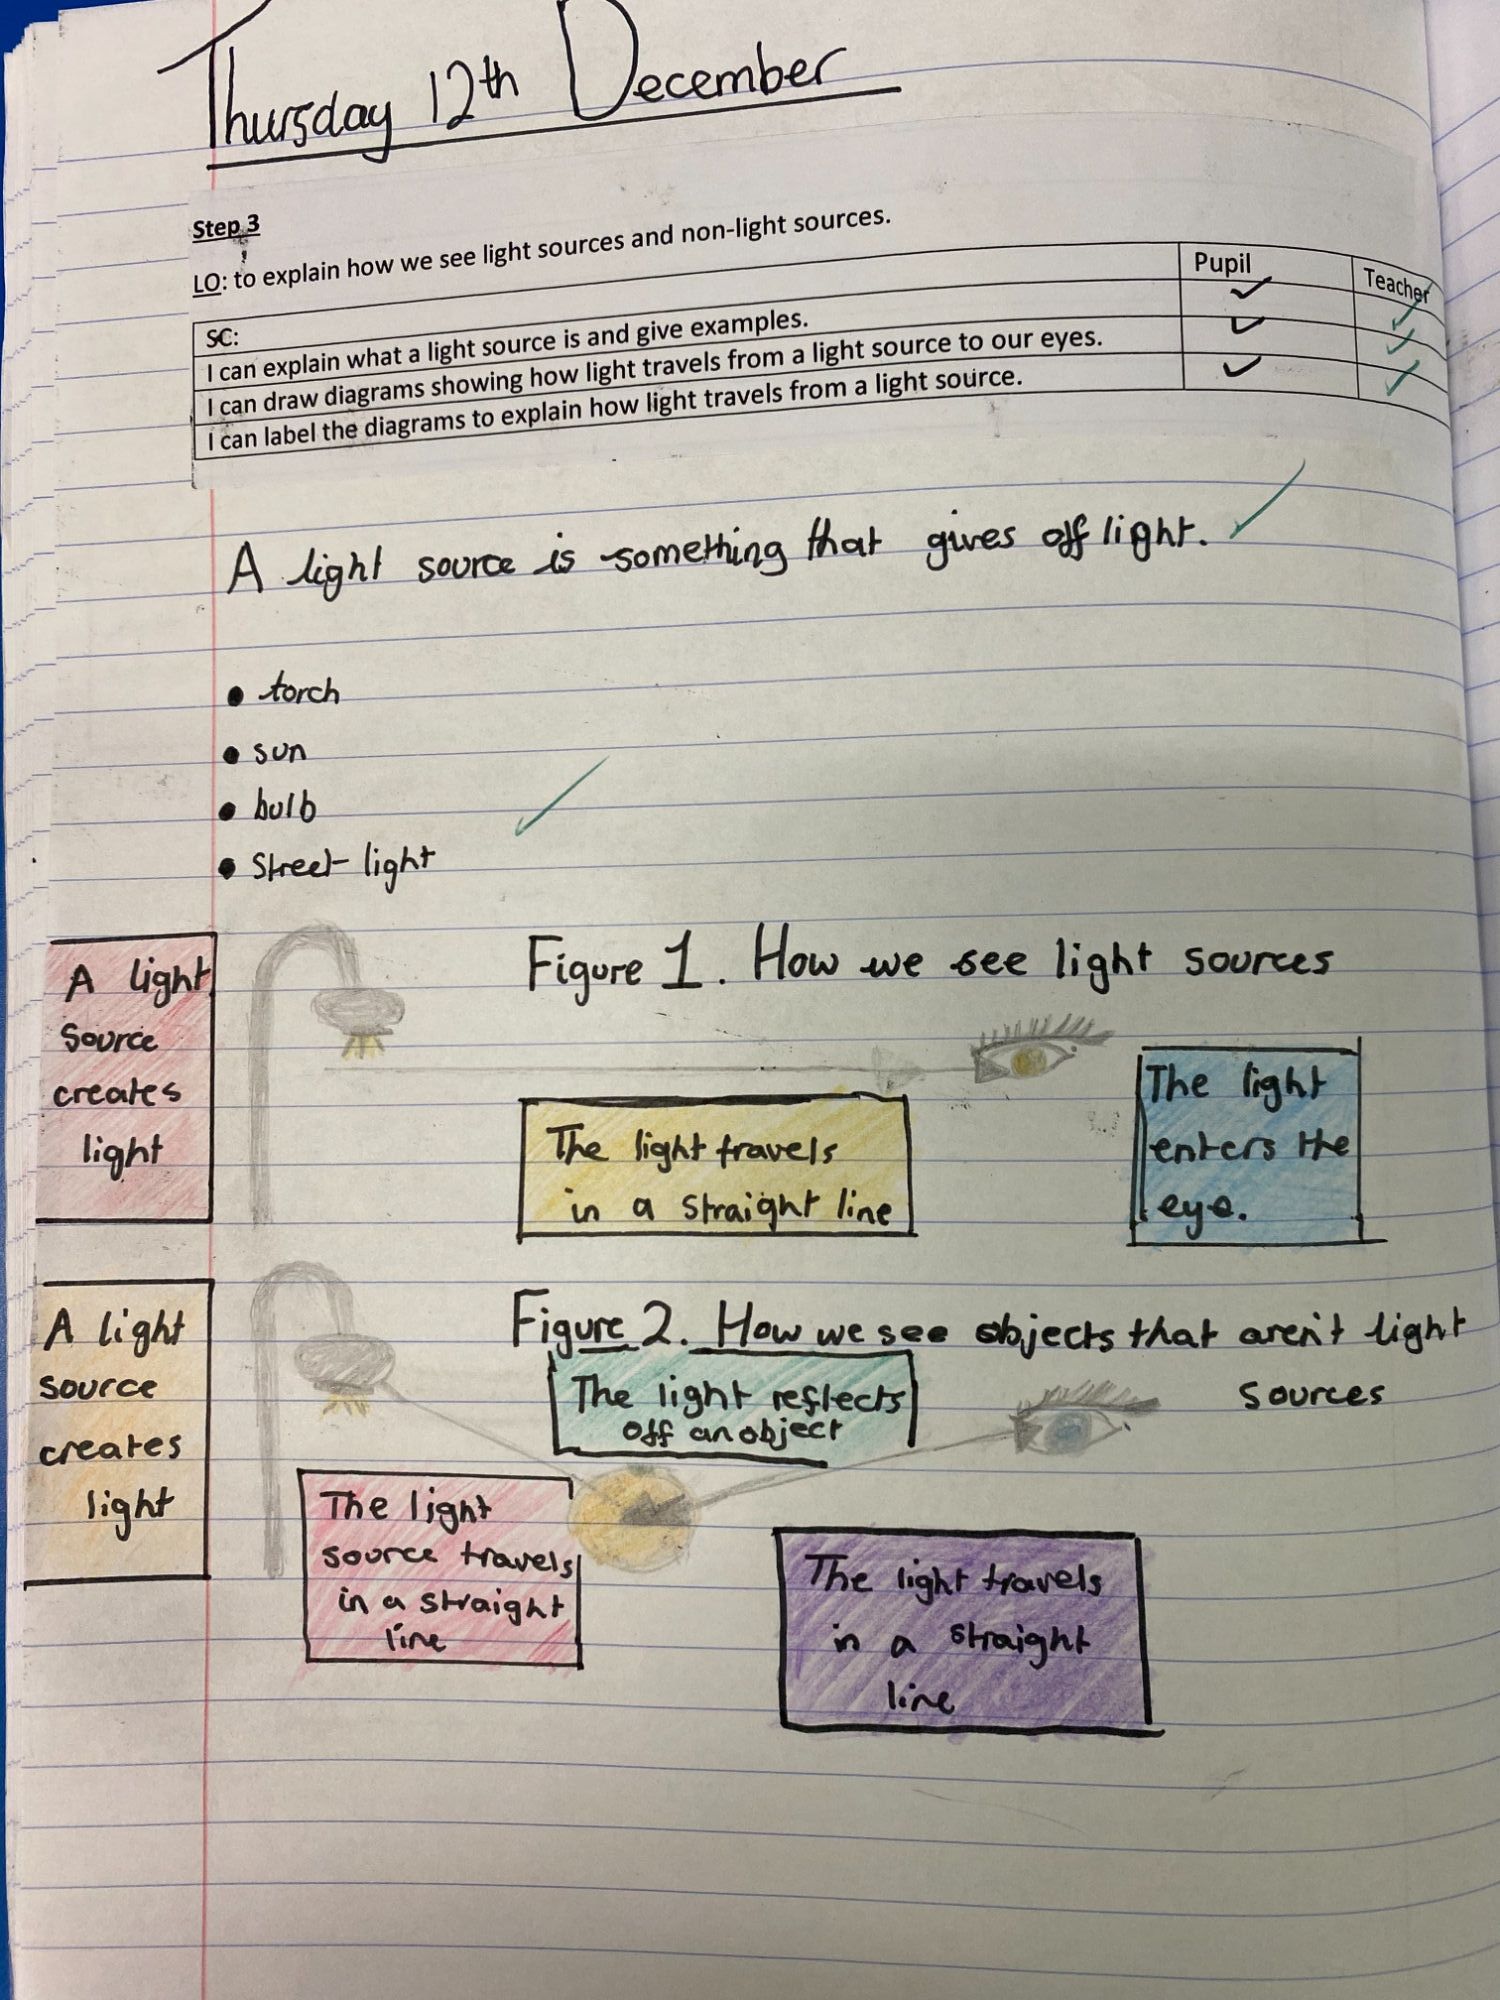 Thursday 12th December
Step 3
LO: to explain how we see light sources and non-light sources.
SC: Pupil Teacher
I can explain what a light source is and give examples.
I can draw diagrams showing how light travels from a light source to our eyes.
I can label the diagrams to explain how light travels from a light source.
A light source is something that gives off light.
• torch
• sun
• bulb
• Street light
Figure 1. How we see light sources
A light
Source
creates
light
The light travels
in a straight line
The light
enters the
eye.
Figure 2. How we see objects that aren't light
sources
A light
source
creates
light
The light reflects
off an object
The light
source travels
in a straight
line
The light travels
in a straight
line